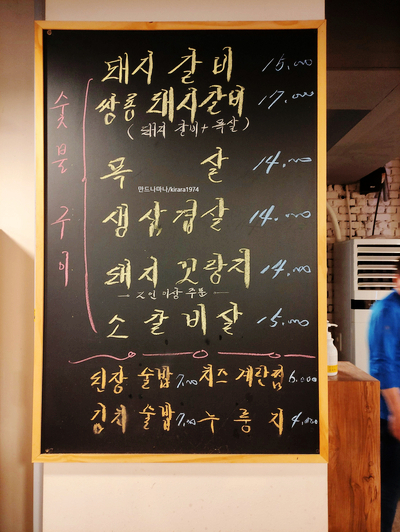 숯불구이
돼지 갈비 15.000
쌍룡 돼지갈비 17.000
( 돼지 갈비 + 목살 )
목 살 14.000
만드나마나/kirara1974
생삼겹살 14.000
돼지 꼬랑지 14.000
2인 이상 주문
소 갈비살 15.000
된장 술밥 7.000 치즈 계란찜 6.000
김치 술밥 7.000 누룽지 4.000